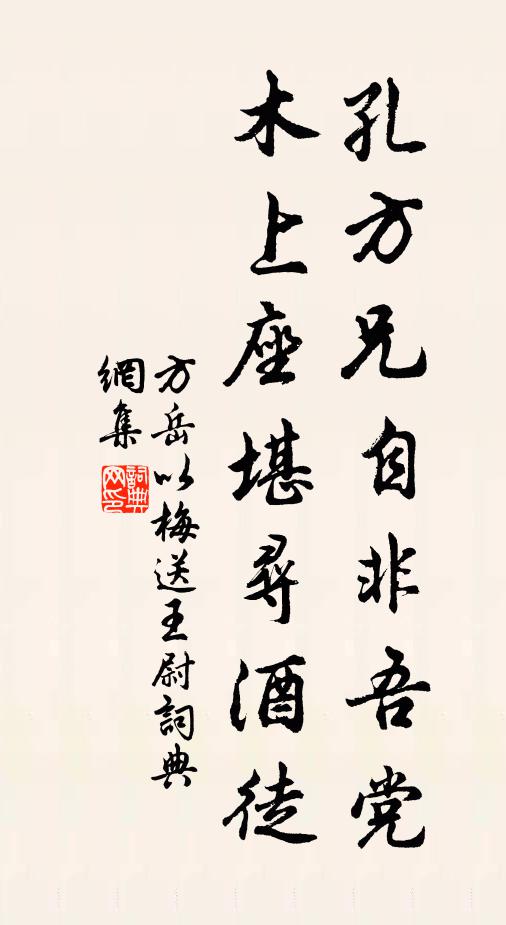 孔方兄自非吾党
木上座堪尋酒徒
方岳以梅送王尉詞典
網集
詞典網印